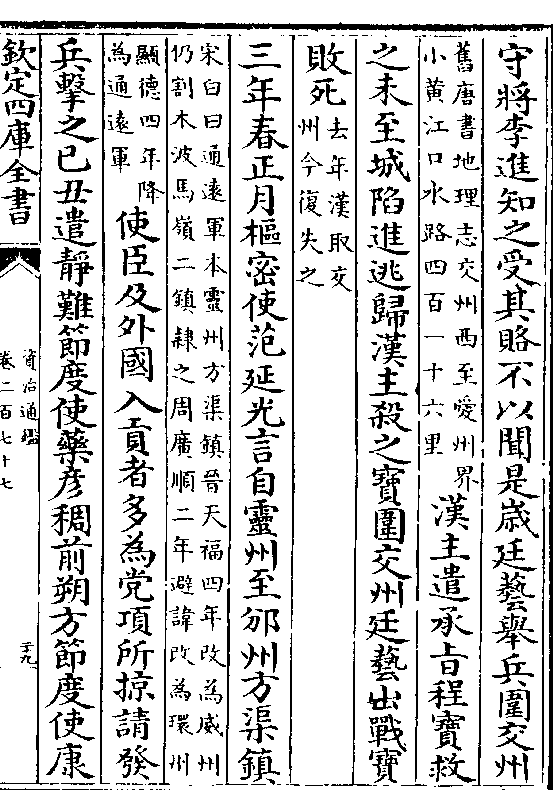 守將李進知之受其賂不以聞是歳廷藝舉兵圍交州
舊唐書地理志交州西至愛州界
小黄江口水路四百一十六里
漢主遣承旨程寳救
之未至城陷進逃歸漢主殺之寳圍交州廷藝出戰寳
敗死
去年漢取交
州今復失之
三年春正月樞密使范延光言自靈州至邠州方渠鎮
宋白曰通遠軍本靈州方渠鎮晉天福四年改為威州
仍割木波馬嶺二鎮隸之周廣順二年避諱改為環州
顯德四年降
為通遠軍
使臣及外國入貢者多為党項所掠請發
兵擊之已丑遣靜難節度使藥彦稠前朔方節度使康
欽定四庫全書
資治通鑑
卷二百七十七